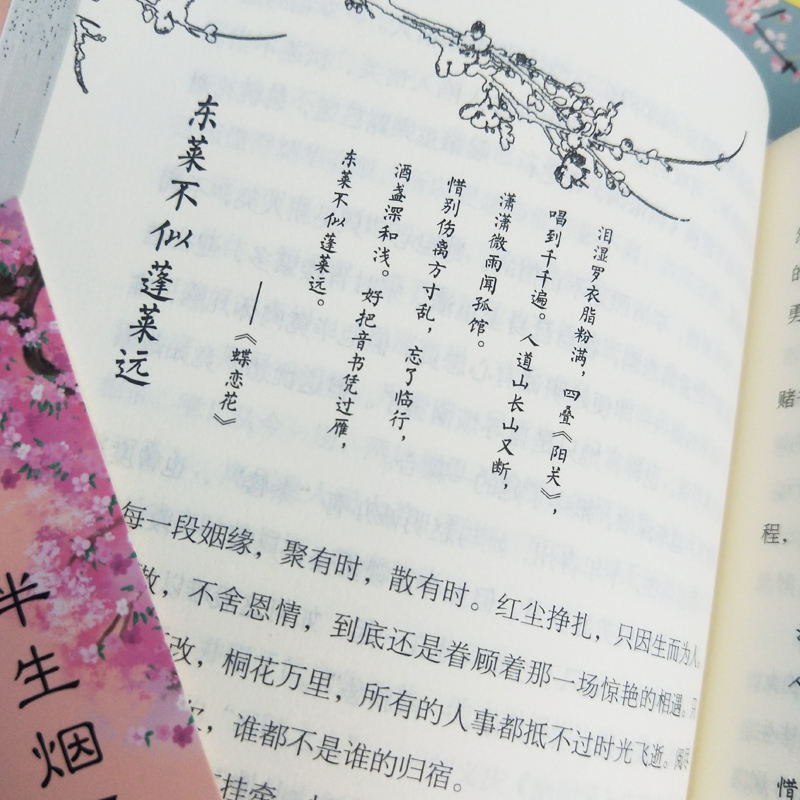 东莱不似蓬莱远
泪湿罗衣脂粉满，四叠《阳关》，
唱到千千遍。人道山长山又断，
潇潇微雨闻孤馆。
惜别伤离方寸乱，忘了临行，
酒盏深和浅。好把音书凭过雁，
东莱不似蓬莱远。
——《蝶恋花》
每一段姻缘，聚有时，散有时。红尘挣扎，只因生而为人。
，不舍恩情，到底还是眷顾着那一场惊艳的相遇。
改，桐花万里，所有的人事都抵不过时光飞逝。
，谁都不是谁的归宿。
挂牵
半生烟
的
勇
赌
程，
惜